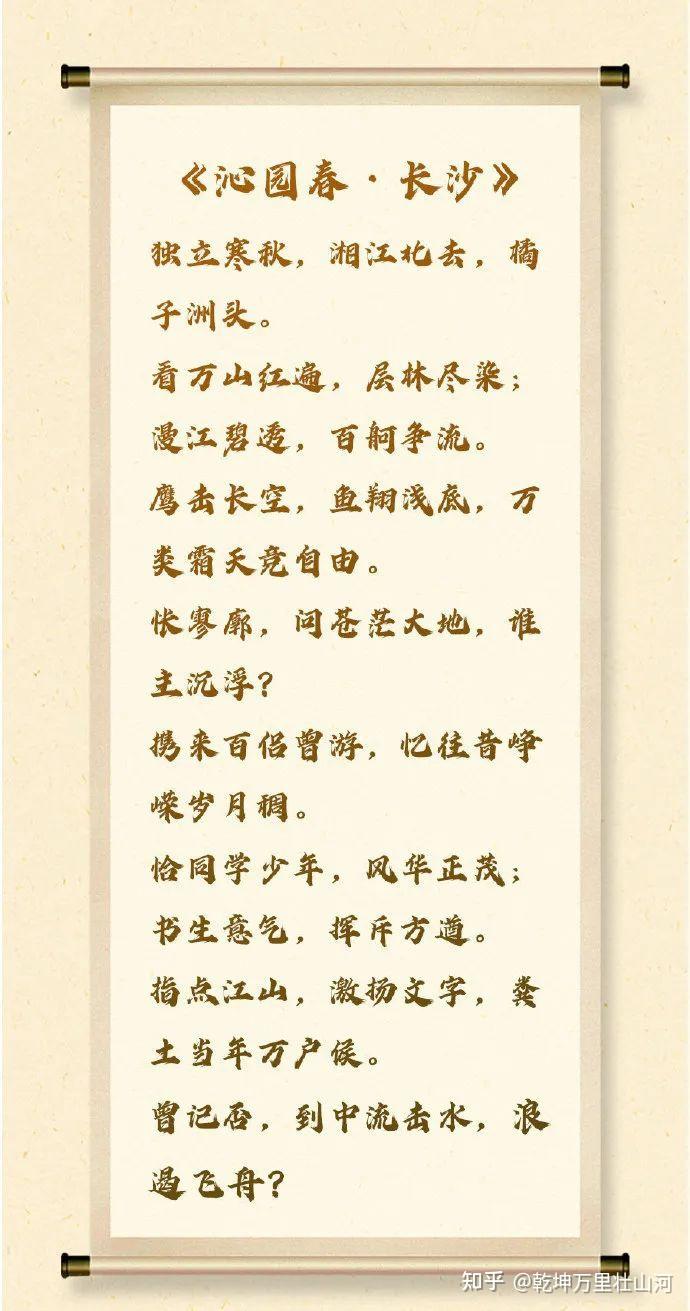 《沁园春·长沙》
独立寒秋，湘江北去，橘
子洲头。
看万山红遍，层林尽染；
漫江碧透，百舸争流。
鹰击长空，鱼翔浅底，万
类霜天竞自由。
怅寥廓，问苍茫大地，谁
主沉浮？
携来百侣曾游，忆往昔峥
嵘岁月稠。
恰同学少年，风华正茂；
书生意气，挥斥方遒。
指点江山，激扬文字，粪
土当年万户侯。
曾记否，到中流击水，浪
遏飞舟？
知乎 @乾坤万里壮山河